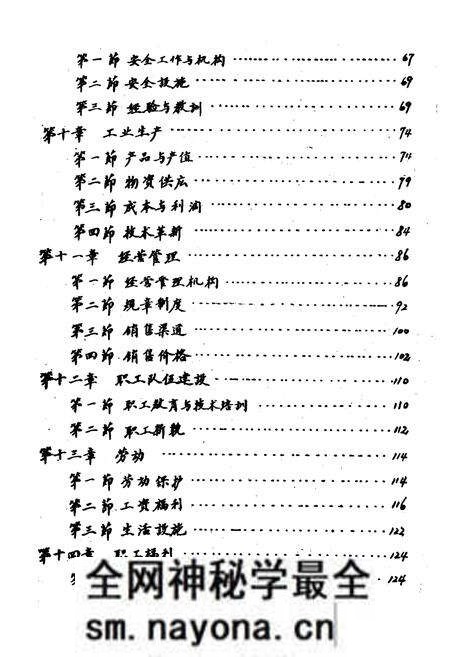 第一節 安全工作与机构 67
第二節 安全設施 69
第三節 经验与教训 69
第十章 工业生产 74
第一節 产品与产值 74
第二節 物资供应 79
第三節 成本与利润 80
第四節 技术革新 84
第十一章 经营管理 86
第一節 经营管理机构 86
第二節 规章制度 92
第三節 销售渠道 100
第四節 销售价格 102
第十二章 职工队伍建設 110
第一節 职工教育与技术培训 110
第二節 职工新貌 112
第十三章 劳动 114
第一節 劳动保护 114
第二節 工资福利 116
第三節 生活設施 122
第十四章 职工福利 124
124
全网神秘学最全
sm.nayona.cn